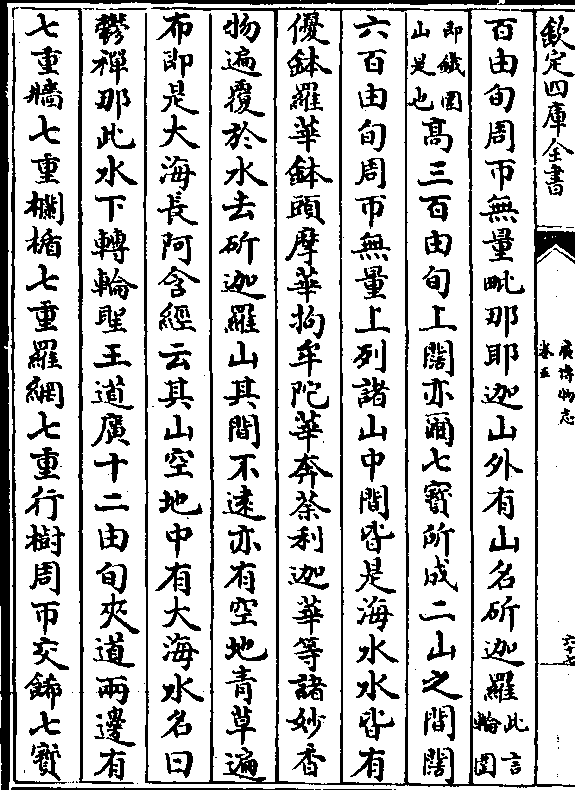 欽定四庫全書
廣博物志
卷五
六十七
百由旬周帀無量毗那耶迦山外有山名斫迦羅此言輪圍
即鐵圍山是也高三百由旬上闊亦爾七寶所成二山之間闊
六百由旬周帀無量上列諸山中間皆是海水水皆有
優鉢羅華鉢頭摩華拘牟陀華奔荼利迦華等諸妙香
物遍覆於水去斫迦羅山其間不遠亦有空地青草遍
布即是大海長阿含經云其山空地中有大海水名曰
欝禪那此水下轉輪聖王道廣十二由旬夾道兩邊有
七重牆七重欄楯七重羅網七重行樹周帀交飾七寶